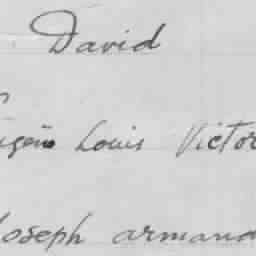 David
Louis Victor
Joseph armand